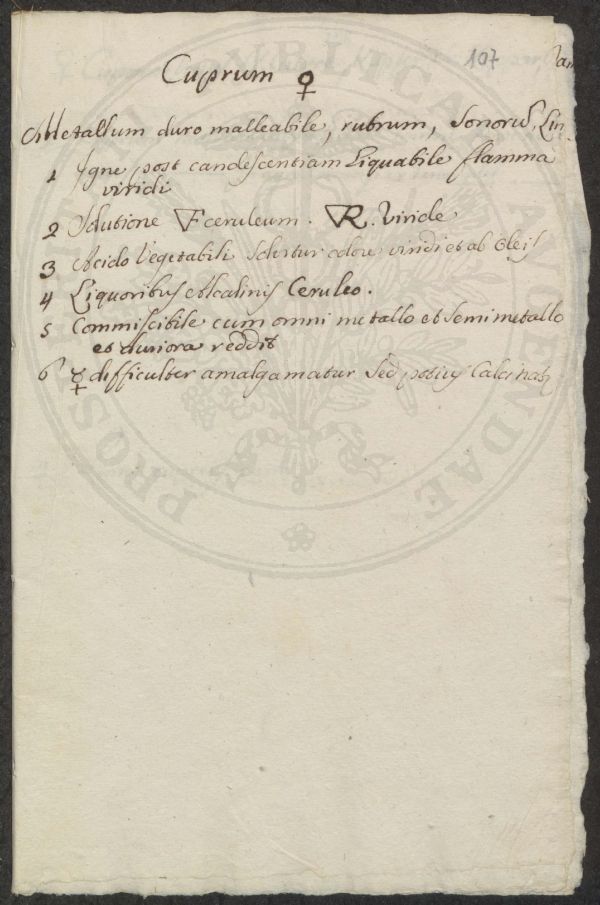 107
Cuprum ♀
Metallum duro malleabile, rubrum, Sonorus, Lin.
1 Igne post candescentiam Liquabile flamma
viridi
2 Solutione 🜄F ceruleum. 🜄R. Viride
3 Acido Vegetabili Solvitur colore viridi et ab Oleis
4 Liquoribus Alcalinis Ceruleo.
5 Commiscibile cum omni metallo et Semimetallo
et duriora reddit
6 ☿ difficulter amalgamatur Sed potius Calcinatz
PUBLICAE
PROS
AUGENDAE